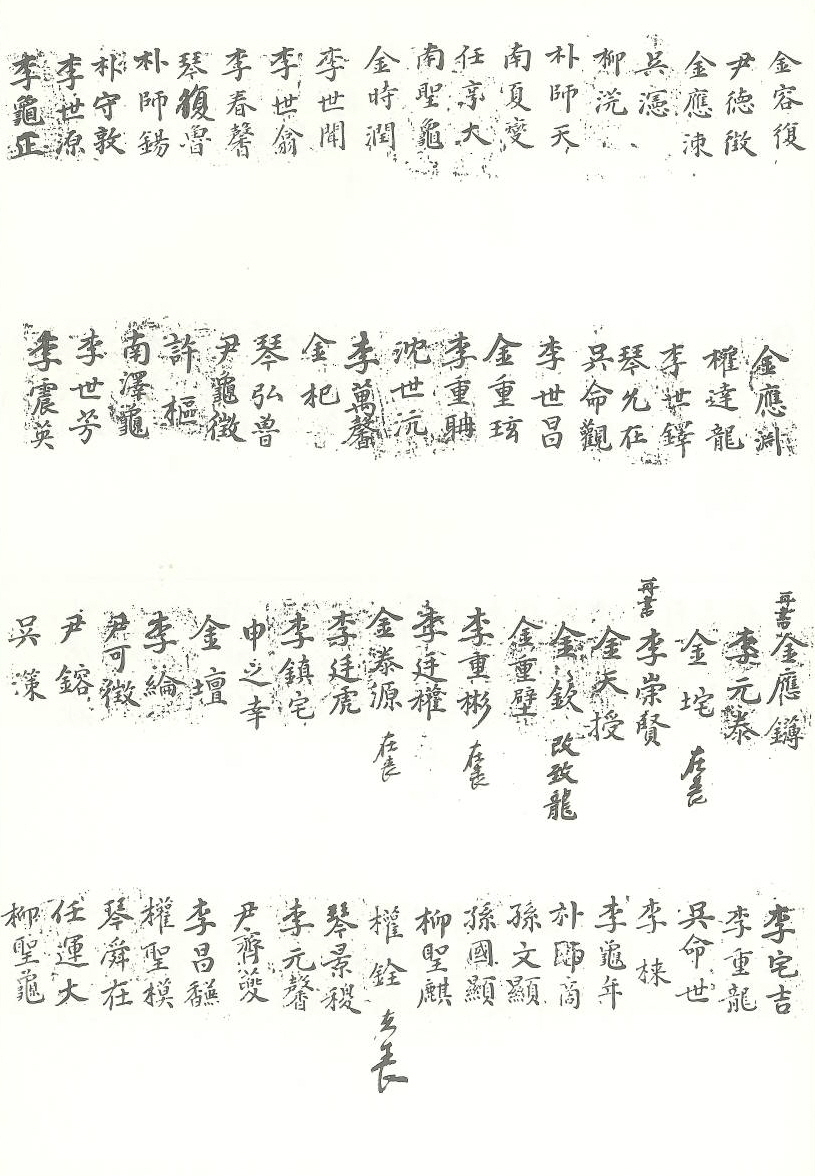 金容復
尹德徴
金應涑
吳濦
柳浣
朴師天
南夏變
任京大
南聖龜
金時潤
李世聞
李世翁
李春馨
琴復魯
朴師錫
朴守敦
李世源
李龜正
金應洌
權達龍
李世鐸
琴允在
吳命觀
李世昌
金重玹
李重聃
沈世沆
李萬馨
金杞
琴弘魯
尹龜徴
許樞
南澤龜
李世芳
李震英
再書 金應鏄
李元泰
金垞 在喪
再書 李崇賢
金天授
金欽 改致龍
金重璧
李重彬 在喪
李廷權
金泰源 在喪
李廷虎
李鎮宅
申之幸
金壇
李綸
尹可徴
尹鎔
吳濼
李宅吉
李重龍
吳命世
李栜
李龜年
朴師高
孫文顯
孫國顯
柳聖麒
權銓 在喪
琴景稷
李元馨
尹齊夔
李昌馦
權聖模
琴舜在
任運大
柳聖龜